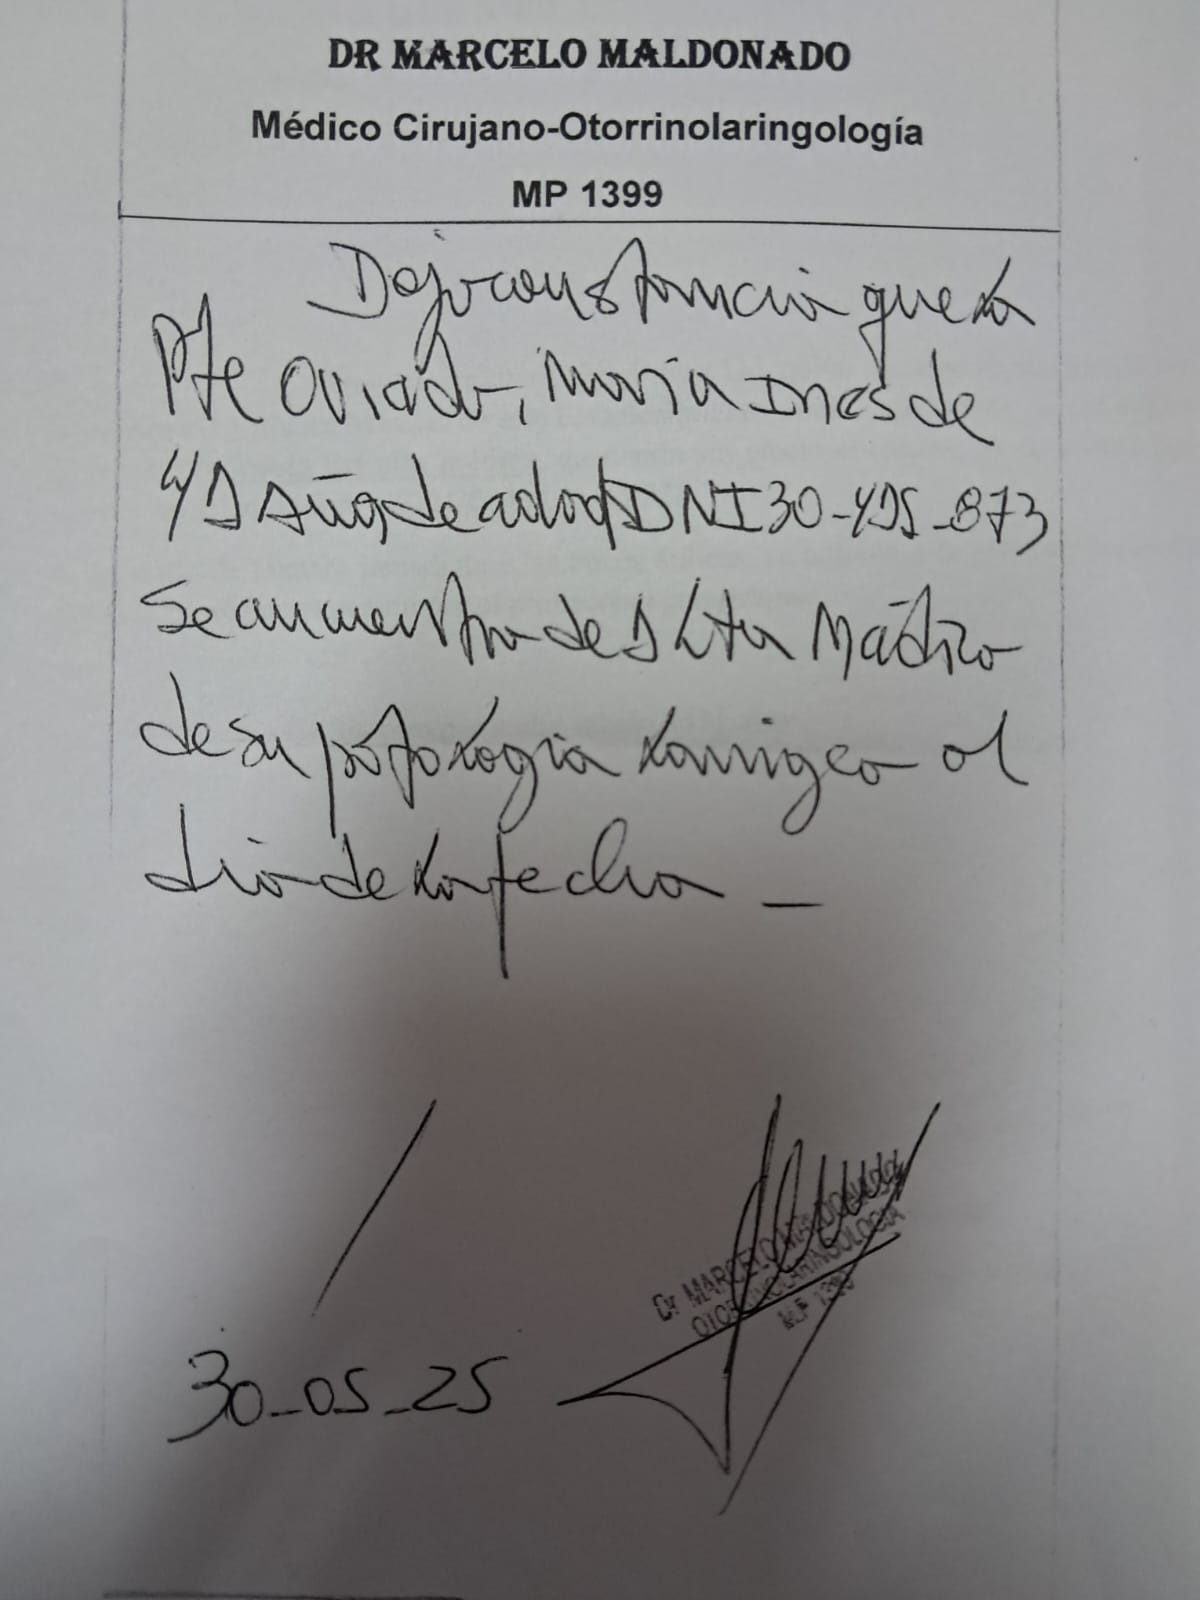 DR MARCELO MALDONADO
Médico Cirujano-Otorrinolaringología
MP 1399
Dejo constancia que la
Pte Oviedo, Maria Ines de
41 Años de edad DNI 30-415-873
Se encuentra de Alta Médico
de su patologia laringea al
dia de la fecha -
30-05-25
Dr MARCELO MALDONADO
OTORRINOLARINGOLOGIA
M.P 1399